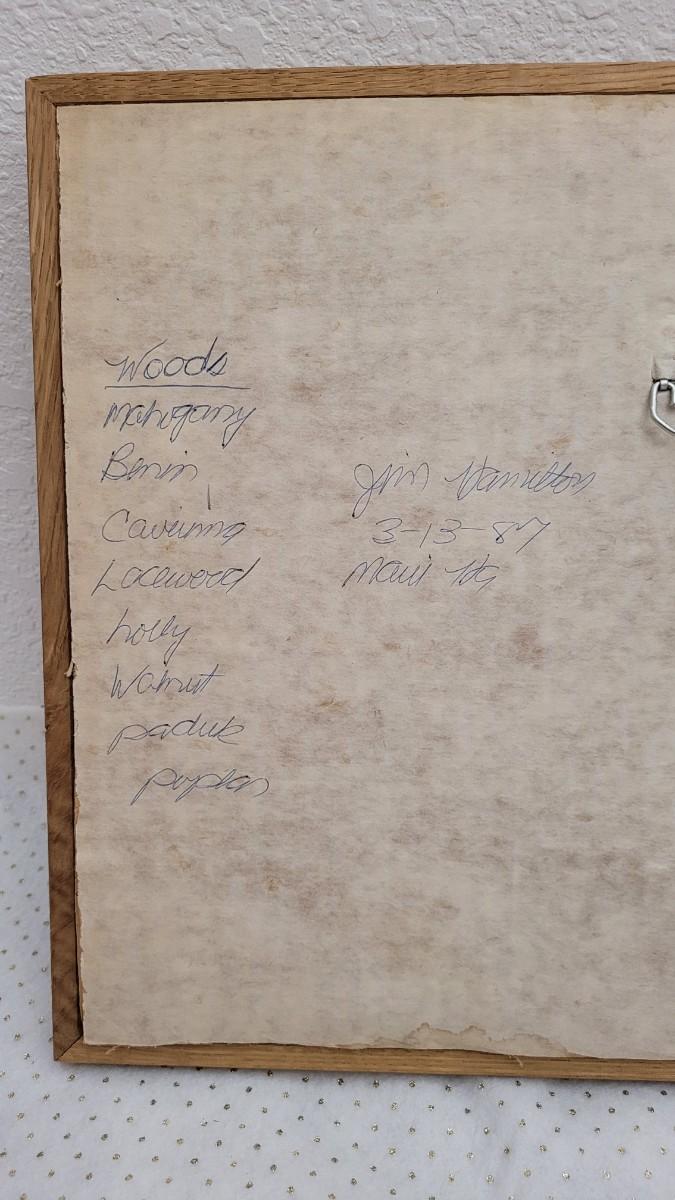 Woods
Mahogany
Benin
Caviuna
Lacewood
holly
Walnut
paduk
poplar
Jim Hamilton
3-13-87
Maui